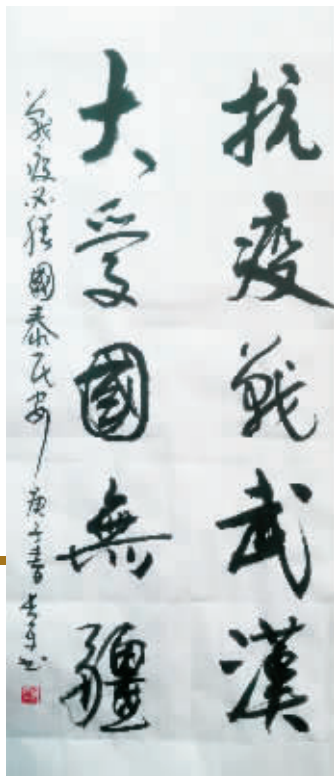 抗疫戰武漢
大愛國無疆
戰疫必勝國泰民安 庚子書